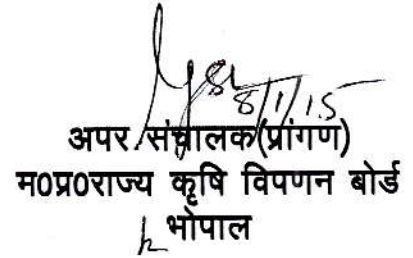 8/1/15
अपर संचालक(प्रांगण)
म0प्र0राज्य कृषि विपणन बोर्ड
भोपाल